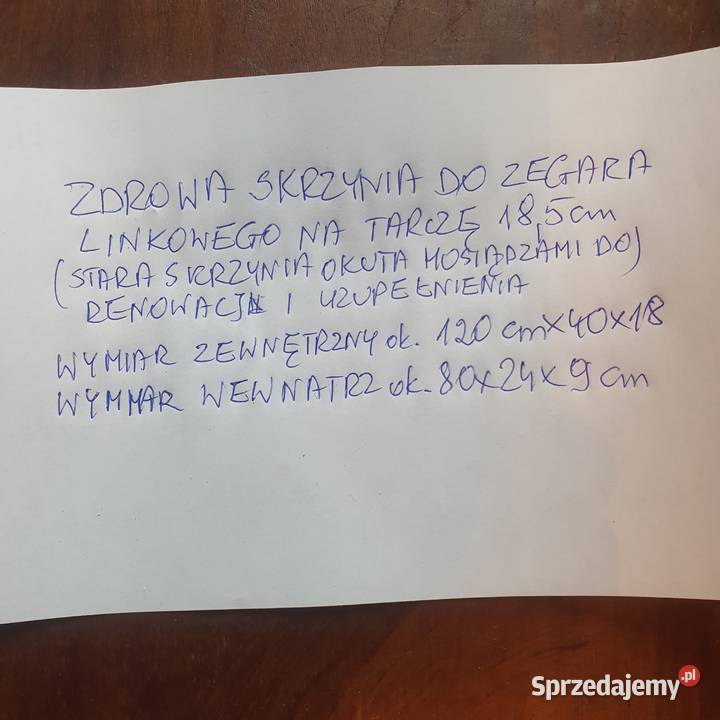 ZDROWA SKRZYNIA DO ZEGARA
LINKOWEGO NA TARCZĘ 18,5cm
(STARA SKRZYNIA OKUTA MOSIĄDZAMI DO)
RENOWACJI I UZUPEŁNIENIA
WYMIAR ZEWNĘTRZNY ok. 120 cmx40x18
WYMIAR WEWNATRZ ok. 80x24x9cm
Sprzedajemy.pl